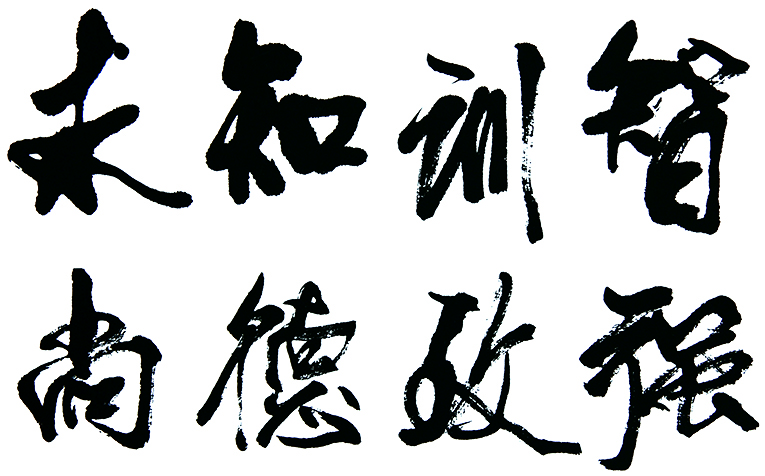 求知训智
尚德致强